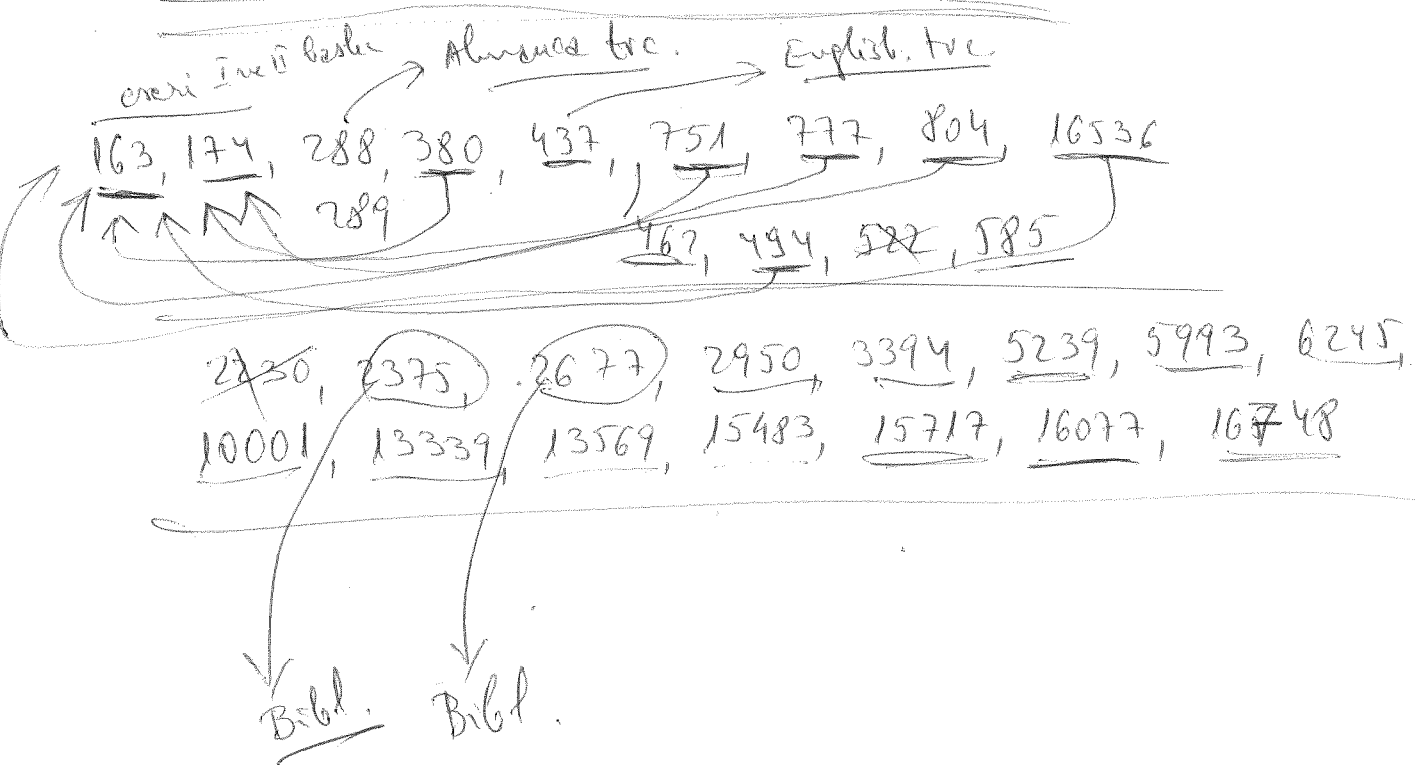 eseri I ve II baskı Almanca trc. English. trc.
163, 174, 288, 380, 437, 751, 777, 804, 16536
289 467, 494, 522, 585
2230, 2375, 2677, 2950, 3394, 5239, 5993, 6245,
10001, 13339, 13569, 15483, 15717, 16077, 16748
Bibl. Bibl.